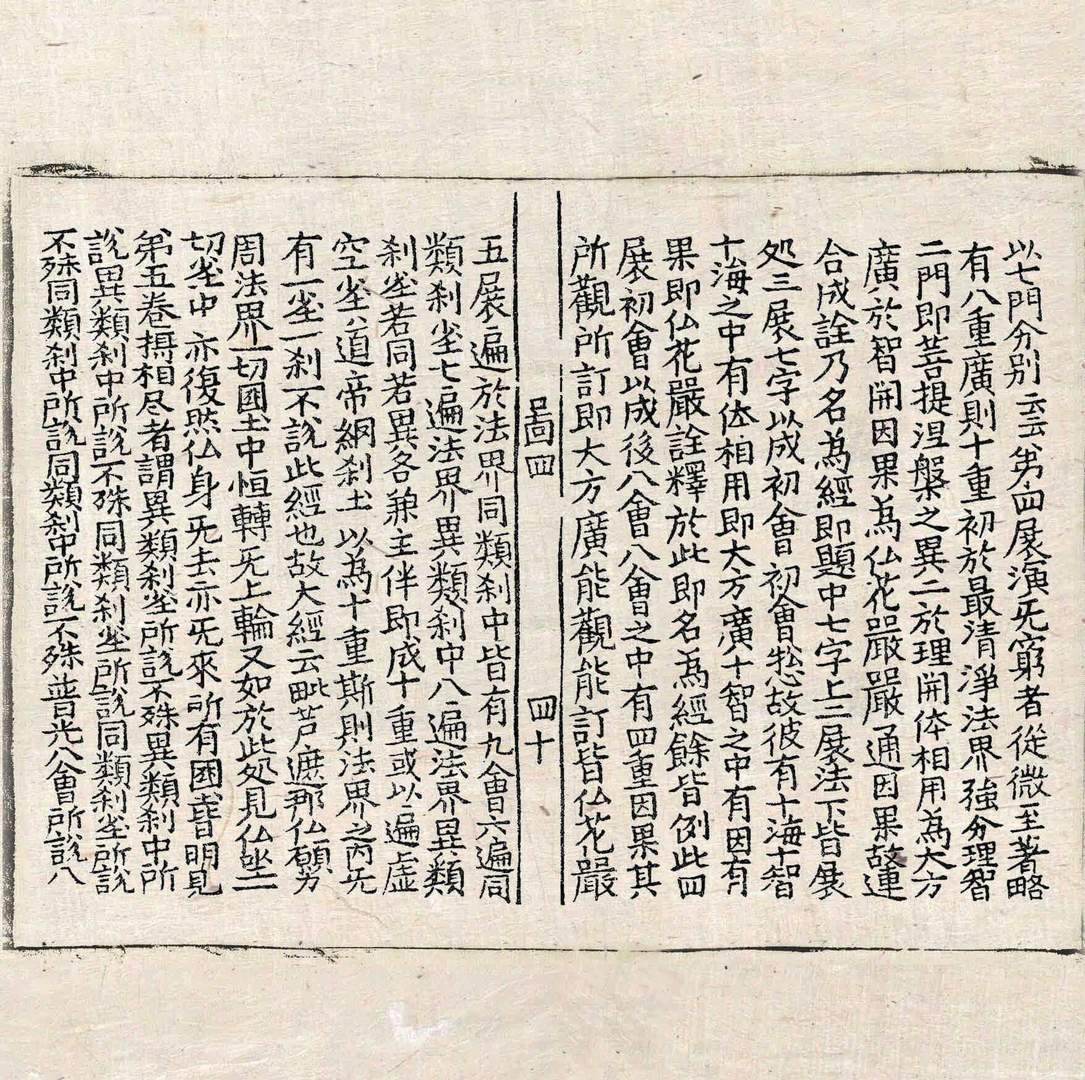 以七門分别云云第四展演旡窮者從微至著略
有八重廣則十重初於最清淨法界強分理智
二門即菩提涅槃之異二於理開体相用為大方
廣於智開因果為仏花嚴嚴通因果故連
合成詮乃名為經即題中七字上三展法下皆展
処三展七字以成初會初會惣故彼有十海十智
十海之中有体相用即大方廣十智之中有因有
果即仏花嚴詮釋於此即名為經餘皆例此四
展初會以成後八會八會之中有四重因果其
所觀所訂即大方廣能觀能訂皆仏花嚴
啚四
四十
五展遍於法界同類刹中皆有九會六遍同
類刹尘七遍法界異類刹中八遍法界異類
刹尘若同若異各兼主伴即成十重或以遍虛
空尘道帝網刹土以為十重斯則法界之内旡
有一尘一刹不說此經也故大經云毗芦遮那仏願力
周法界一切國土中恒轉旡上輪又如於此処見仏坐一
切尘中亦復然仏身旡去亦旡來所有國土皆明見
第五卷摶相尽者謂異類刹尘所說不殊異類刹中所
說異類刹中所說不殊同類刹尘所說同類刹尘所說
不殊同類刹中所說同類刹中所說不殊普光八會所說八